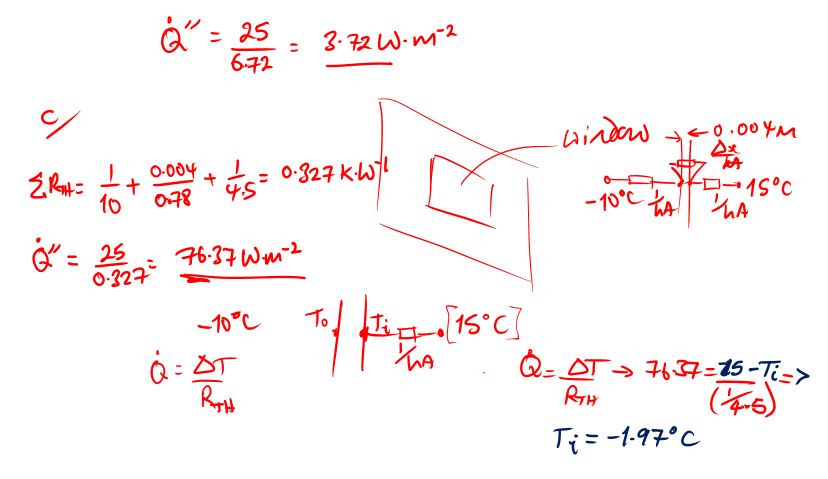 Q̇″ = 25/6.72 = 3.72 W·m⁻²
c/
ΣR_TH = 1/10 + 0.004/0.78 + 1/4.5 = 0.327 K·W⁻¹
Q̇″ = 25/0.327 = 76.37 W·m⁻²
window
0.004M
Δx/kA
-10°C 1/hA 1/hA 15°C
-10°C T₀ Tᵢ 1/hA [15°C]
Q̇ = ΔT/R_TH
Q̇ = ΔT/R_TH → 76.37 = 15 - Tᵢ/(1/4.5) =>
Tᵢ = -1.97°C